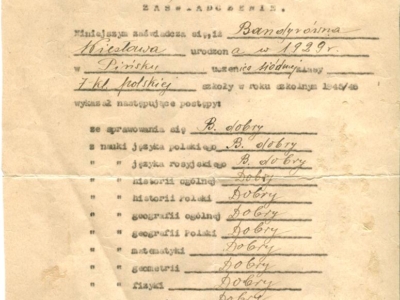 ZAŚWIADCZENIE.
Niniejszym zaświadcza się, iż Bandyrówna
Wiesława urodzona w 1929 r.
w Pińsku uczennica siódmej klasy
7 kl. polskiej szkoły w roku szkolnym 1945/46
wykazał następujące postępy:
ze sprawowania się B. dobry
z nauki języka polskiego B. dobry
" " języka rosyjskiego B. dobry
" " historii ogólnej Dobry
" " historii Polski Dobry
" " geografii ogólnej Dobry
" " geografii Polski Dobry
" " matematyki Dobry
" " geometrii Dobry
" " fizyki Dobry
Dobry